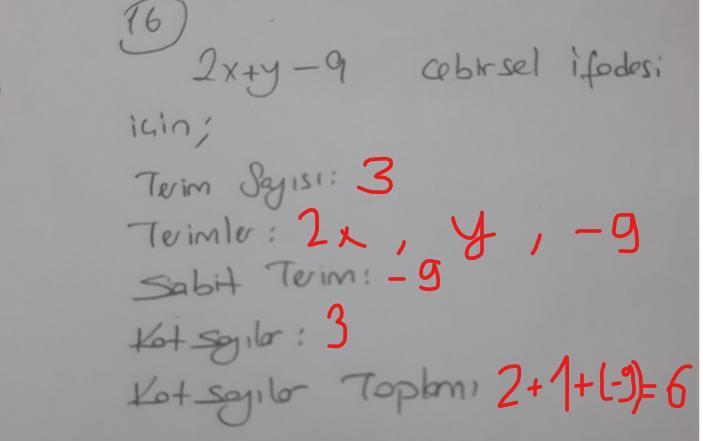 16
2x+y-9 cebirsel ifadesi
için;
Terim Sayısı: 3
Terimler: 2x, y, -9
Sabit Terim: -9
Kat sayılar: 3
Kat sayılar Toplamı 2+1+(-9)=6